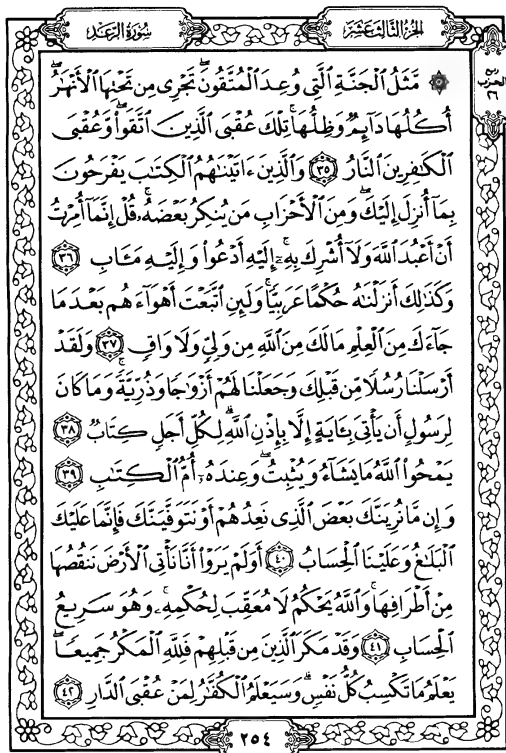 سُورَةُ الرَّعْدِ
الجُزْءُ الثَّالِثَ عَشَرَ
ربع
الحزب
٢٦
۞ مَّثَلُ الْجَنَّةِ الَّتِي وُعِدَ الْمُتَّقُونَ ۖ تَجْرِي مِن تَحْتِهَا الْأَنْهَٰرُ ۖ
أُكُلُهَا دَآئِمٌ وَظِلُّهَا ۚ تِلْكَ عُقْبَى الَّذِينَ اتَّقَوا۟ ۖ وَّعُقْبَى
الْكَٰفِرِينَ النَّارُ ٣٥ وَالَّذِينَ ءَاتَيْنَٰهُمُ الْكِتَٰبَ يَفْرَحُونَ
بِمَآ أُنزِلَ إِلَيْكَ ۖ وَمِنَ الْأَحْزَابِ مَن يُنكِرُ بَعْضَهُۥ ۚ قُلْ إِنَّمَآ أُمِرْتُ
أَنْ أَعْبُدَ اللَّهَ وَلَآ أُشْرِكَ بِهِۦٓ ۚ إِلَيْهِ أَدْعُوا۟ وَإِلَيْهِ مَـَٔابِ ٣٦
وَكَذَٰلِكَ أَنزَلْنَٰهُ حُكْمًا عَرَبِيًّا ۚ وَلَئِنِ اتَّبَعْتَ أَهْوَآءَهُم بَعْدَمَا
جَآءَكَ مِنَ الْعِلْمِ مَا لَكَ مِنَ اللَّهِ مِن وَلِيٍّ وَلَا وَاقٍ ٣٧ وَلَقَدْ
أَرْسَلْنَا رُسُلًا مِّن قَبْلِكَ وَجَعَلْنَا لَهُمْ أَزْوَٰجًا وَذُرِّيَّةً ۚ وَمَا كَانَ
لِرَسُولٍ أَن يَأْتِيَ بِـَٔايَةٍ إِلَّا بِإِذْنِ اللَّهِ ۗ لِكُلِّ أَجَلٍ كِتَابٌ ٣٨
يَمْحُوا۟ اللَّهُ مَا يَشَآءُ وَيُثْبِتُ ۖ وَعِندَهُۥٓ أُمُّ الْكِتَٰبِ ٣٩
وَإِن مَّا نُرِيَنَّكَ بَعْضَ الَّذِي نَعِدُهُمْ أَوْ نَتَوَفَّيَنَّكَ فَإِنَّمَا عَلَيْكَ
الْبَلَٰغُ وَعَلَيْنَا الْحِسَابُ ٤٠ أَوَلَمْ يَرَوْا۟ أَنَّا نَأْتِي الْأَرْضَ نَنقُصُهَا
مِنْ أَطْرَافِهَا ۚ وَاللَّهُ يَحْكُمُ لَا مُعَقِّبَ لِحُكْمِهِۦ ۚ وَهُوَ سَرِيعُ
الْحِسَابِ ٤١ وَقَدْ مَكَرَ الَّذِينَ مِن قَبْلِهِمْ فَلِلَّهِ الْمَكْرُ جَمِيعًا ۖ
يَعْلَمُ مَا تَكْسِبُ كُلُّ نَفْسٍ ۗ وَسَيَعْلَمُ الْكُفَّٰرُ لِمَنْ عُقْبَى الدَّارِ ٤٢
٢٥٤